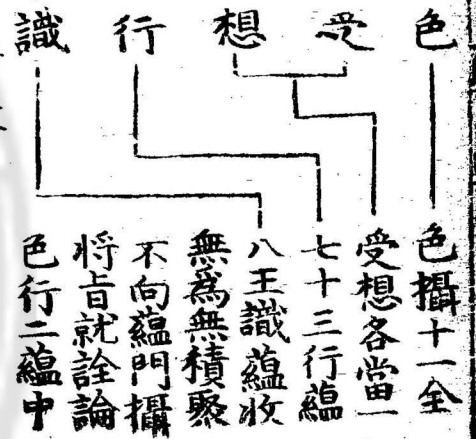 色
受
想
行
識
色攝十一全
受想各當一
七十三行蘊
八王識蘊收
無為無積聚
不向蘊門攝
将旨就詮論
色行二蘊中